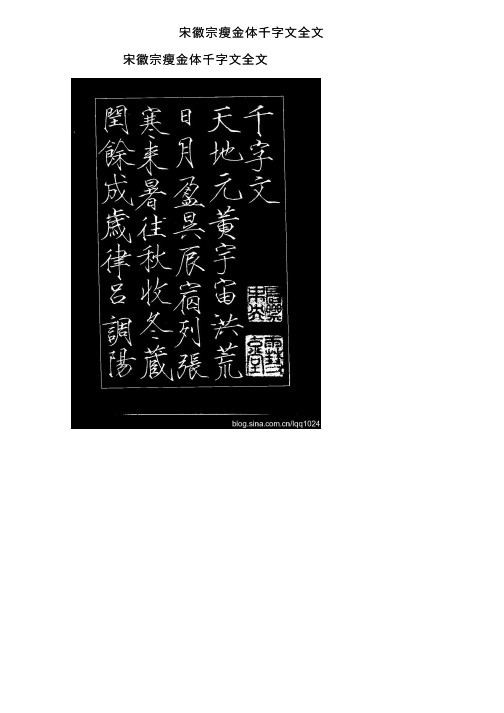 宋徽宗瘦金体千字文全文
宋徽宗瘦金体千字文全文
千字文
天地元黃宇宙洪荒
日月盈昃辰宿列張
寒來暑往秋收冬藏
閏餘成歲律呂調陽
blog.sina.com.cn/lqq1024